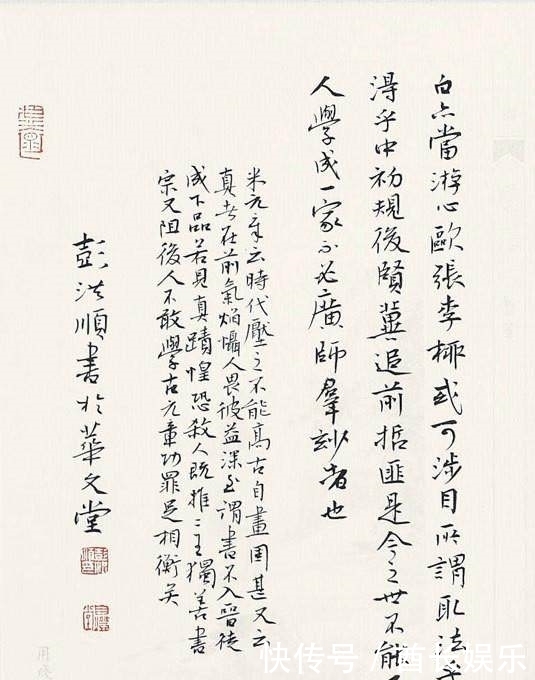 白亦當游心歐張李柳或可涉目所謂取法
得乎中初規後賢冀追前哲匪是今之世不能
人學成一家不必廣師羣妙者也
米元章云時代壓之不能高古自畫固甚又云
真者在前氣焰懾人畏彼益深至謂書不入晉徒
成下品若見真蹟惶恐殺人既推二王獨善書
宗又阻後人不敢學古元章功罪足相衡矣
彭洪順書於華文堂
快传号 / 酋长娱乐